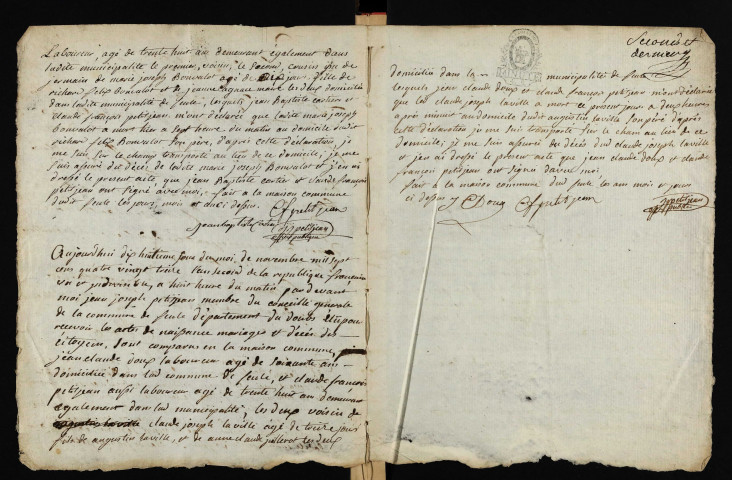 Laboureur agé de trente huit ans demeurant également dans
ladite municipalité le premier, voisin, le second, cousin issu de
germain de marie joseph Bonvalot agé de jours fille de
richard felix Bonvalot et de jeanne agnau marie les deux domiciliés
dans ladite municipalité de feule, lesquels jean Baptiste cartier et
Claude françois petitjean mont déclarée que ladite marie joseph
Bonvalot a mort hier a sept heure du matin au domicile dudit
richard felix Bonvalot son père, d'après cette déclaration, je
me suis sur le champ transporté au lieu de ce domicile, je me
suis assuré du décès de ladite marie joseph Bonvalot et j'en ai
dressé le present acte que jean Baptiste cartier et Claude françois
petitjean ont signé avec moi, fait a la maison commune
dudit feule les jours, mois et an ci dessus.
Cf petit jean
jean baptiste Cartier jj petitjean
off. publique
Aujourdhui dix huitieme jour du mois de novembre mil sept
cens quatre vingt treize l'an second de la republique française
une et indivisible, a huit heure du matin par devant
moi jean joseph petitjean membre du conseille générale
de la commune de feule département du doubs élu pour
recevoir les actes de naissance mariages et décès des
citoyens, sont comparus en la maison commune,
jean claude doux laboureur agé de soixante ans
domicilié dans lad commune de feule, et claude françois
petitjean aussi laboureur agé de trente huit ans demeurant
également dans lad municipalité, les deux voisins de
claude joseph laville agé de treize jours
fils de augustin laville, et de anne claude les deux
Second et
dernier
domiciliés dans la municipalité de feule
lesquels jean claude doux et claude françois petitjean mont déclarée
que led claude joseph laville a mort ce present jour a deux heures
après minuit au domicile dudit augustin laville son père d'après
cette déclaration je me suis transporté sur le cham au lieu de ce
domicile, je me suis assuré du décès dud claude joseph laville
et j'en ai dressé le present acte que jean claude doux et claude
françois petitjean ont signé davec moi.
fait a la maison commune dud feule les an mois et jours
ci dessus J C Doux Cf petit jean jj petitjean
off. publique